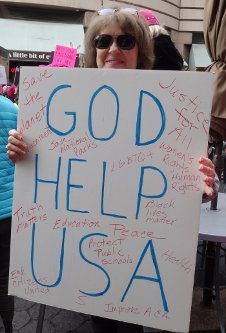 A little bit of e
Save
the
Planet
Justice
for
All
GOD
Save
National
Parks
LGBTQ+
Women's
Rights
Human
Rights
HELP
Black
lives
matter
Truth
Matters
Education
Peace
Protect
Public
Schools
Health
USA
End
Citizens
United
Improve ACA